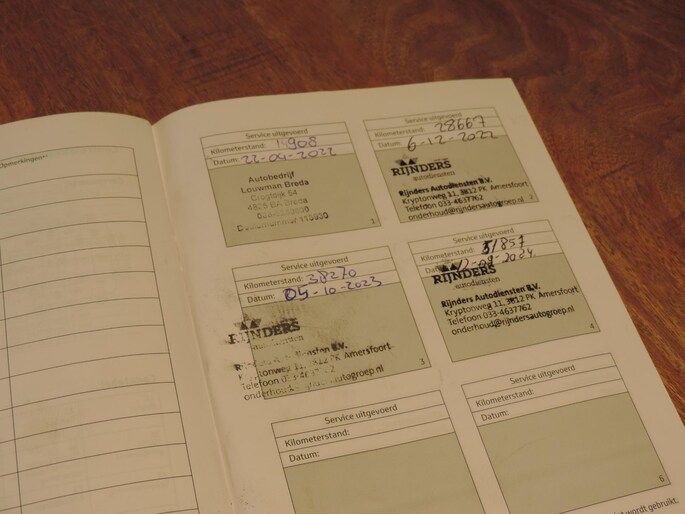 Opmerkingen:
Service uitgevoerd
Kilometerstand: 908
Datum: 22-09-2022
Autobedrijf
Louwman Breda
Breda
1
Service uitgevoerd
Kilometerstand: 28667
Datum: 6-12-2022
RIJNDERS
autodiensten
Rijnders Autodiensten B.V.
Kryptonweg 11, 3812 PK Amersfoort
Telefoon 033-4637762
onderhoud@rijndersautogroep.nl
2
Service uitgevoerd
Kilometerstand: 38270
Datum: 05-10-2023
RIJNDERS
autodiensten
B.V.
PK Amersfoort
Telefoon
autogroep.nl
3
Service uitgevoerd
Kilometerstand: 51857
2024
RIJNDERS
autodiensten
Rijnders Autodiensten B.V.
Kryptonweg 11, 3812 PK Amersfoort
Telefoon 033-4637762
onderhoud@rijndersautogroep.nl
4
Service uitgevoerd
Kilometerstand:
Datum:
Service uitgevoerd
Kilometerstand:
Datum:
6
wordt gebruikt.